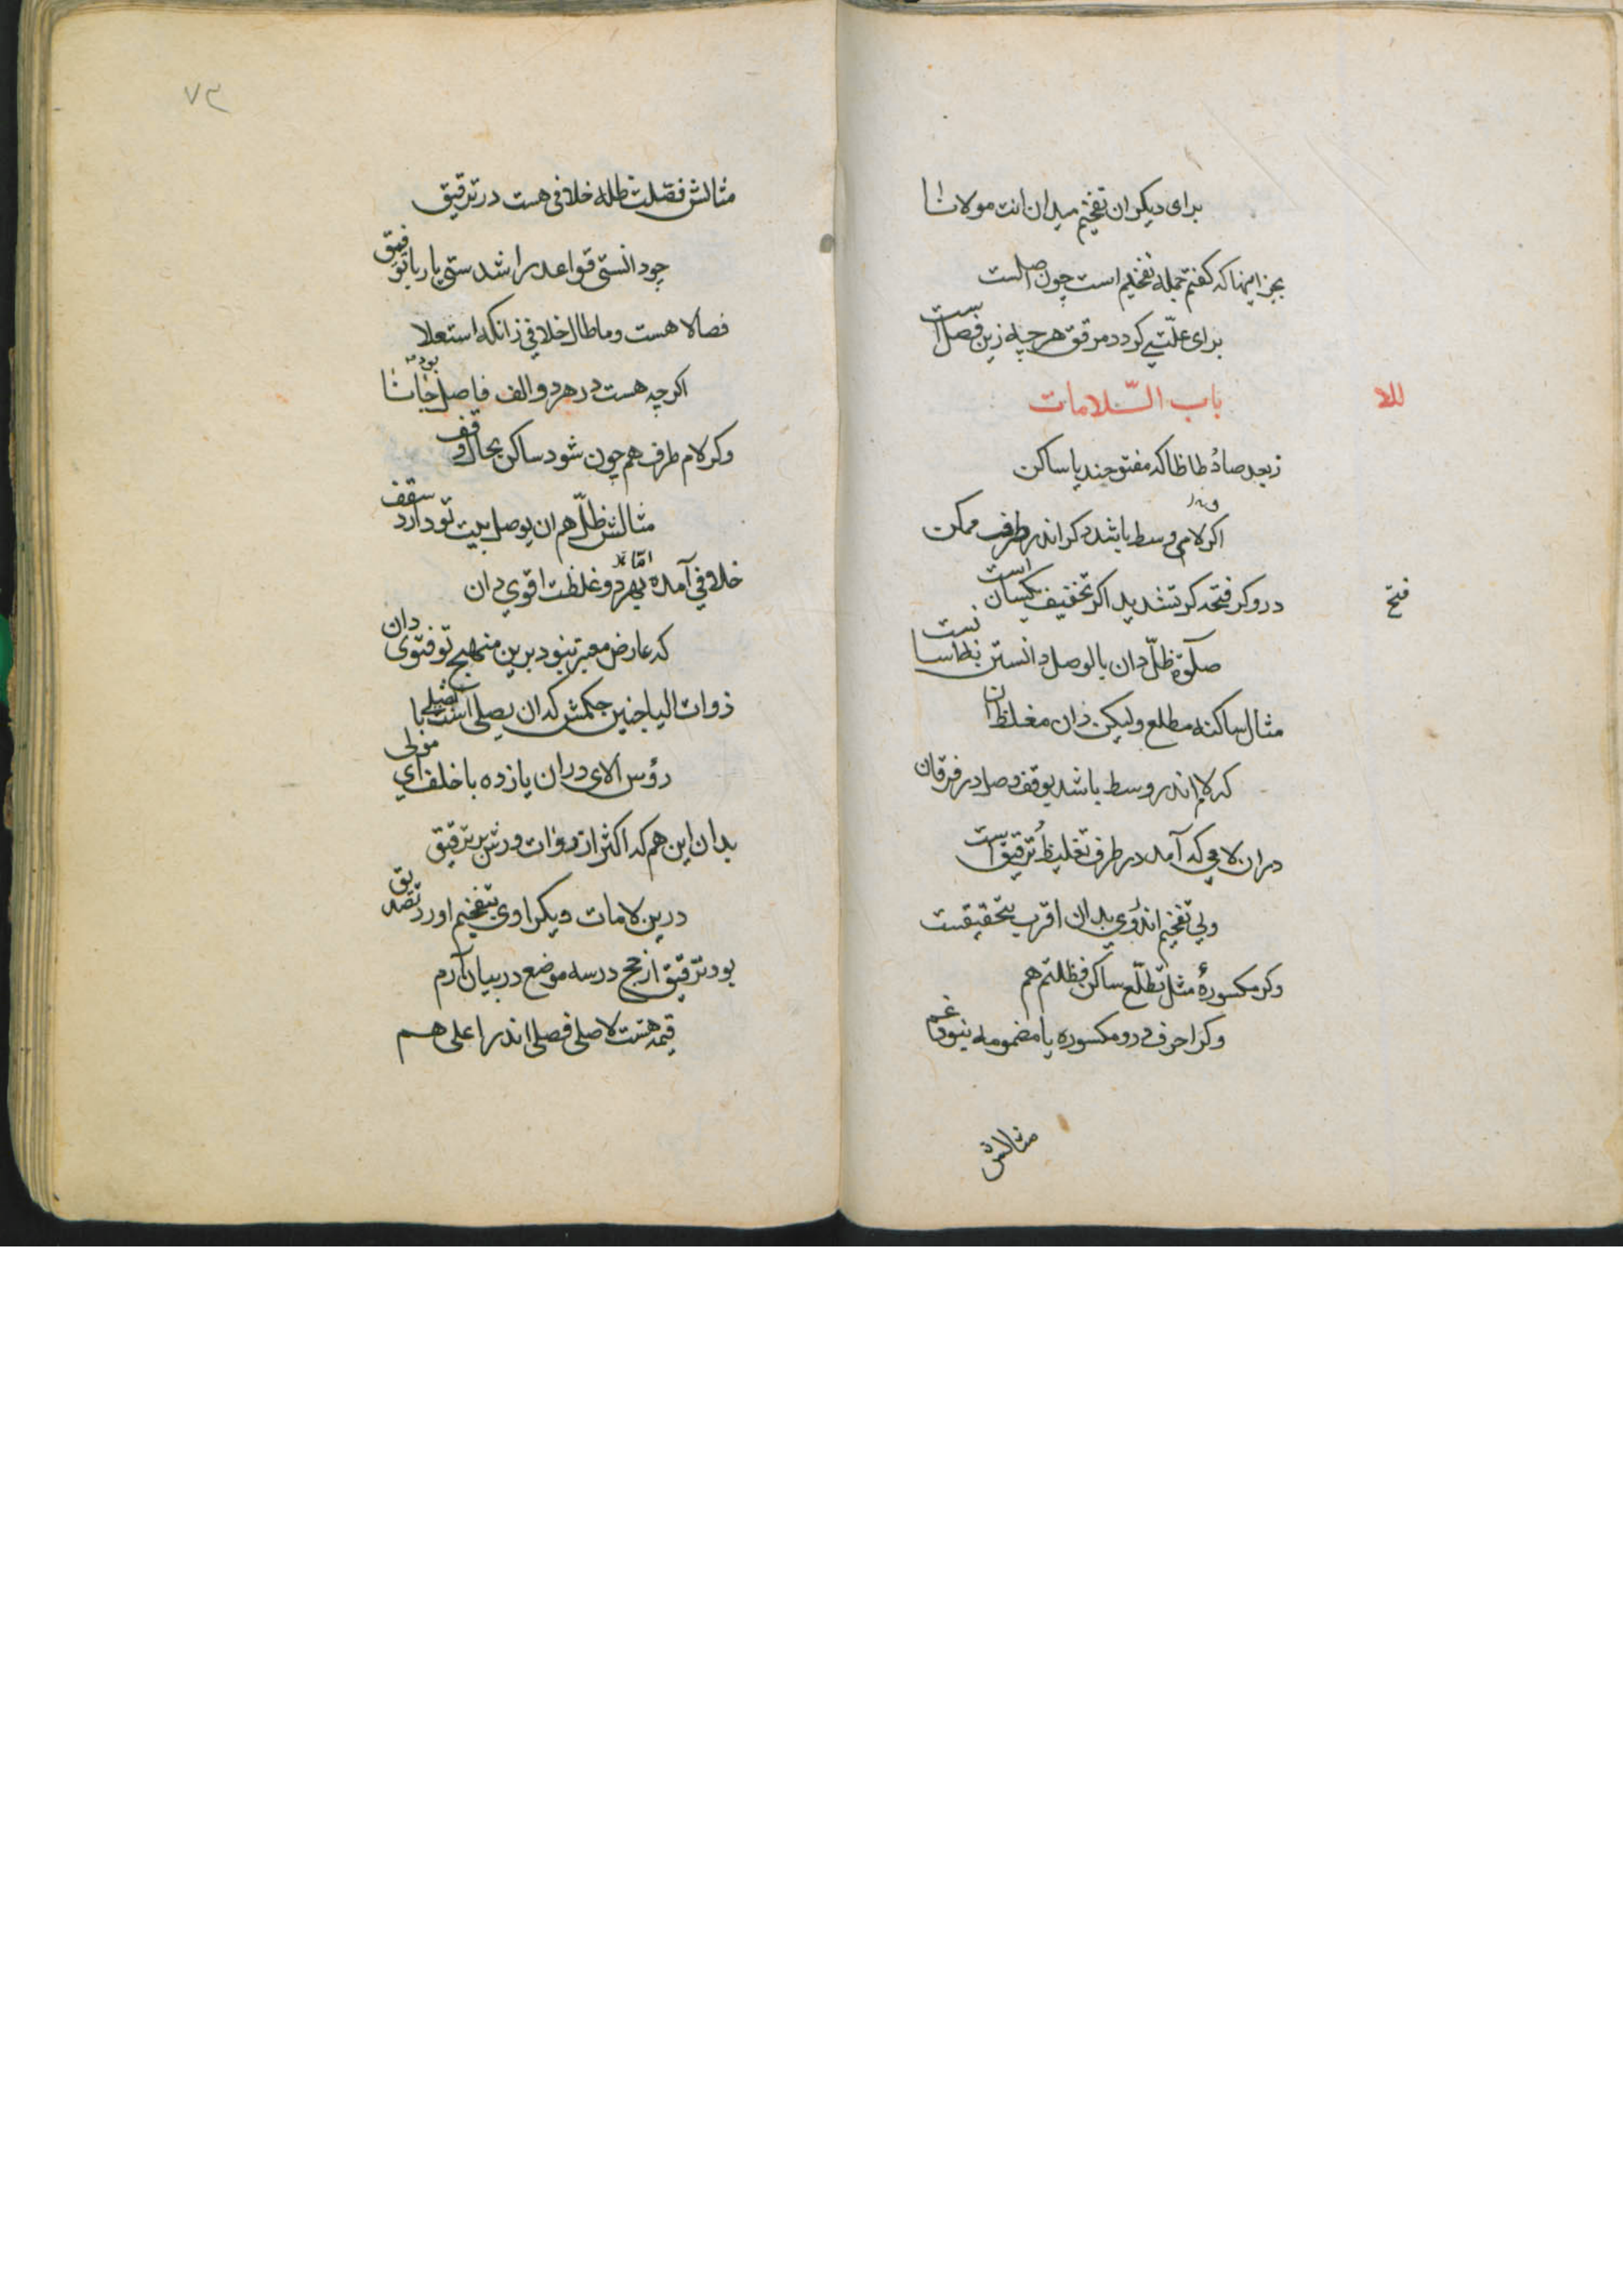 برای دیکران تفخیم میدان انت مولانا
بجز اینها که کفتم جمله تفخیم است چون اصلست
برای علتی کردد مرقق هرچه زین فصل است
للا
باب اللامات
زبعد صاد طا ظا که مفتوحند یا ساکن
اکر لامی وسط باشد کر اندر طرف ممکن
درو کر فتحه کر تشدید اکر تخفیف یکسان است
فتح
صلوة ظل دان بالوصل دانستن
مثال ساکنه مطلع ولیکن دان مغلظ آن
که لام اندر وسط باشد بوقف وصل در فرقان
دران لامی که آمد در طرف تغلیظ ترقیق است
ولی تفخیم اندوی بدان اقرب بتحقیقست
وکر مکسوره مثل تطلع ساکن فظلتم هم
وکر احرف درو مکسوره یا مضمومه نبود غم
مثالش
۷۳
مثالش فصلت ظله خلافی هست در ترقیق
چو دانستی قواعد را شدستی یار با توفیق
فصالا هست وما طال خلافی زانکه استعلا
اکرچه هست در هردو الف فاصل بود
وکر لام طرف هم چون شود ساکن بحال وقف
مثالش ظل هم ان یوصل بیت تو دارد سقف
خلافی آمده بهردو اما غلظت اقوی دان
که عارض معتبر نبود برین منهج تو فتوی دان
ذوات الیا چنین حکمش که ان یصلی است تصلی با
رؤس الای دران یازده با خلف ای مولی
بدان این هم که اکثر از روات ورش بر ترقیق
درین لامات دیکر راوی بتفخیم اورد تصدیق
بود ترقیق ارجح در سه موضع در بیان آرم
قیمه هست لا صلی فصلی اندر اعلی هم